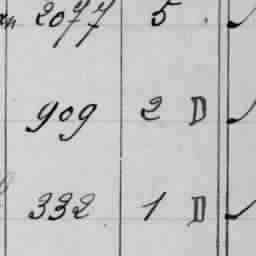 2077 5
909 2 D
332 1 D